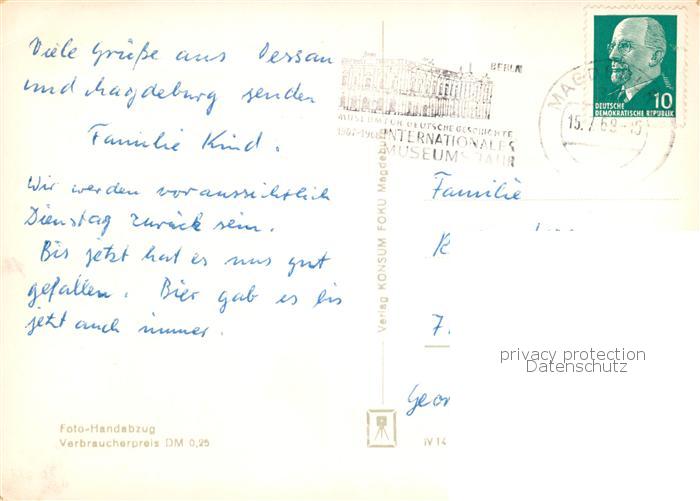 Viele Grüße aus Dessau
und Magdeburg senden
Familie Kind.
Wir werden voraussichtlich
Dienstag zurück sein.
Bis jetzt hat es uns gut
gefallen. Bier gab es bis
jetzt auch immer.
Foto-Handabzug
Verbraucherpreis DM 0,25
Verlag KONSUM FOKU Magdeburg
BERLIN
MUSEUM FÜR DEUTSCHE GESCHICHTE
1967-1968 INTERNATIONALES
MUSEUMSJAHR
MAGDEBURG
15.7.68-15
DEUTSCHE
DEMOKRATISCHE REPUBLIK
10
Familie
K
7.
privacy protection
Datenschutz
Geor
IV 14